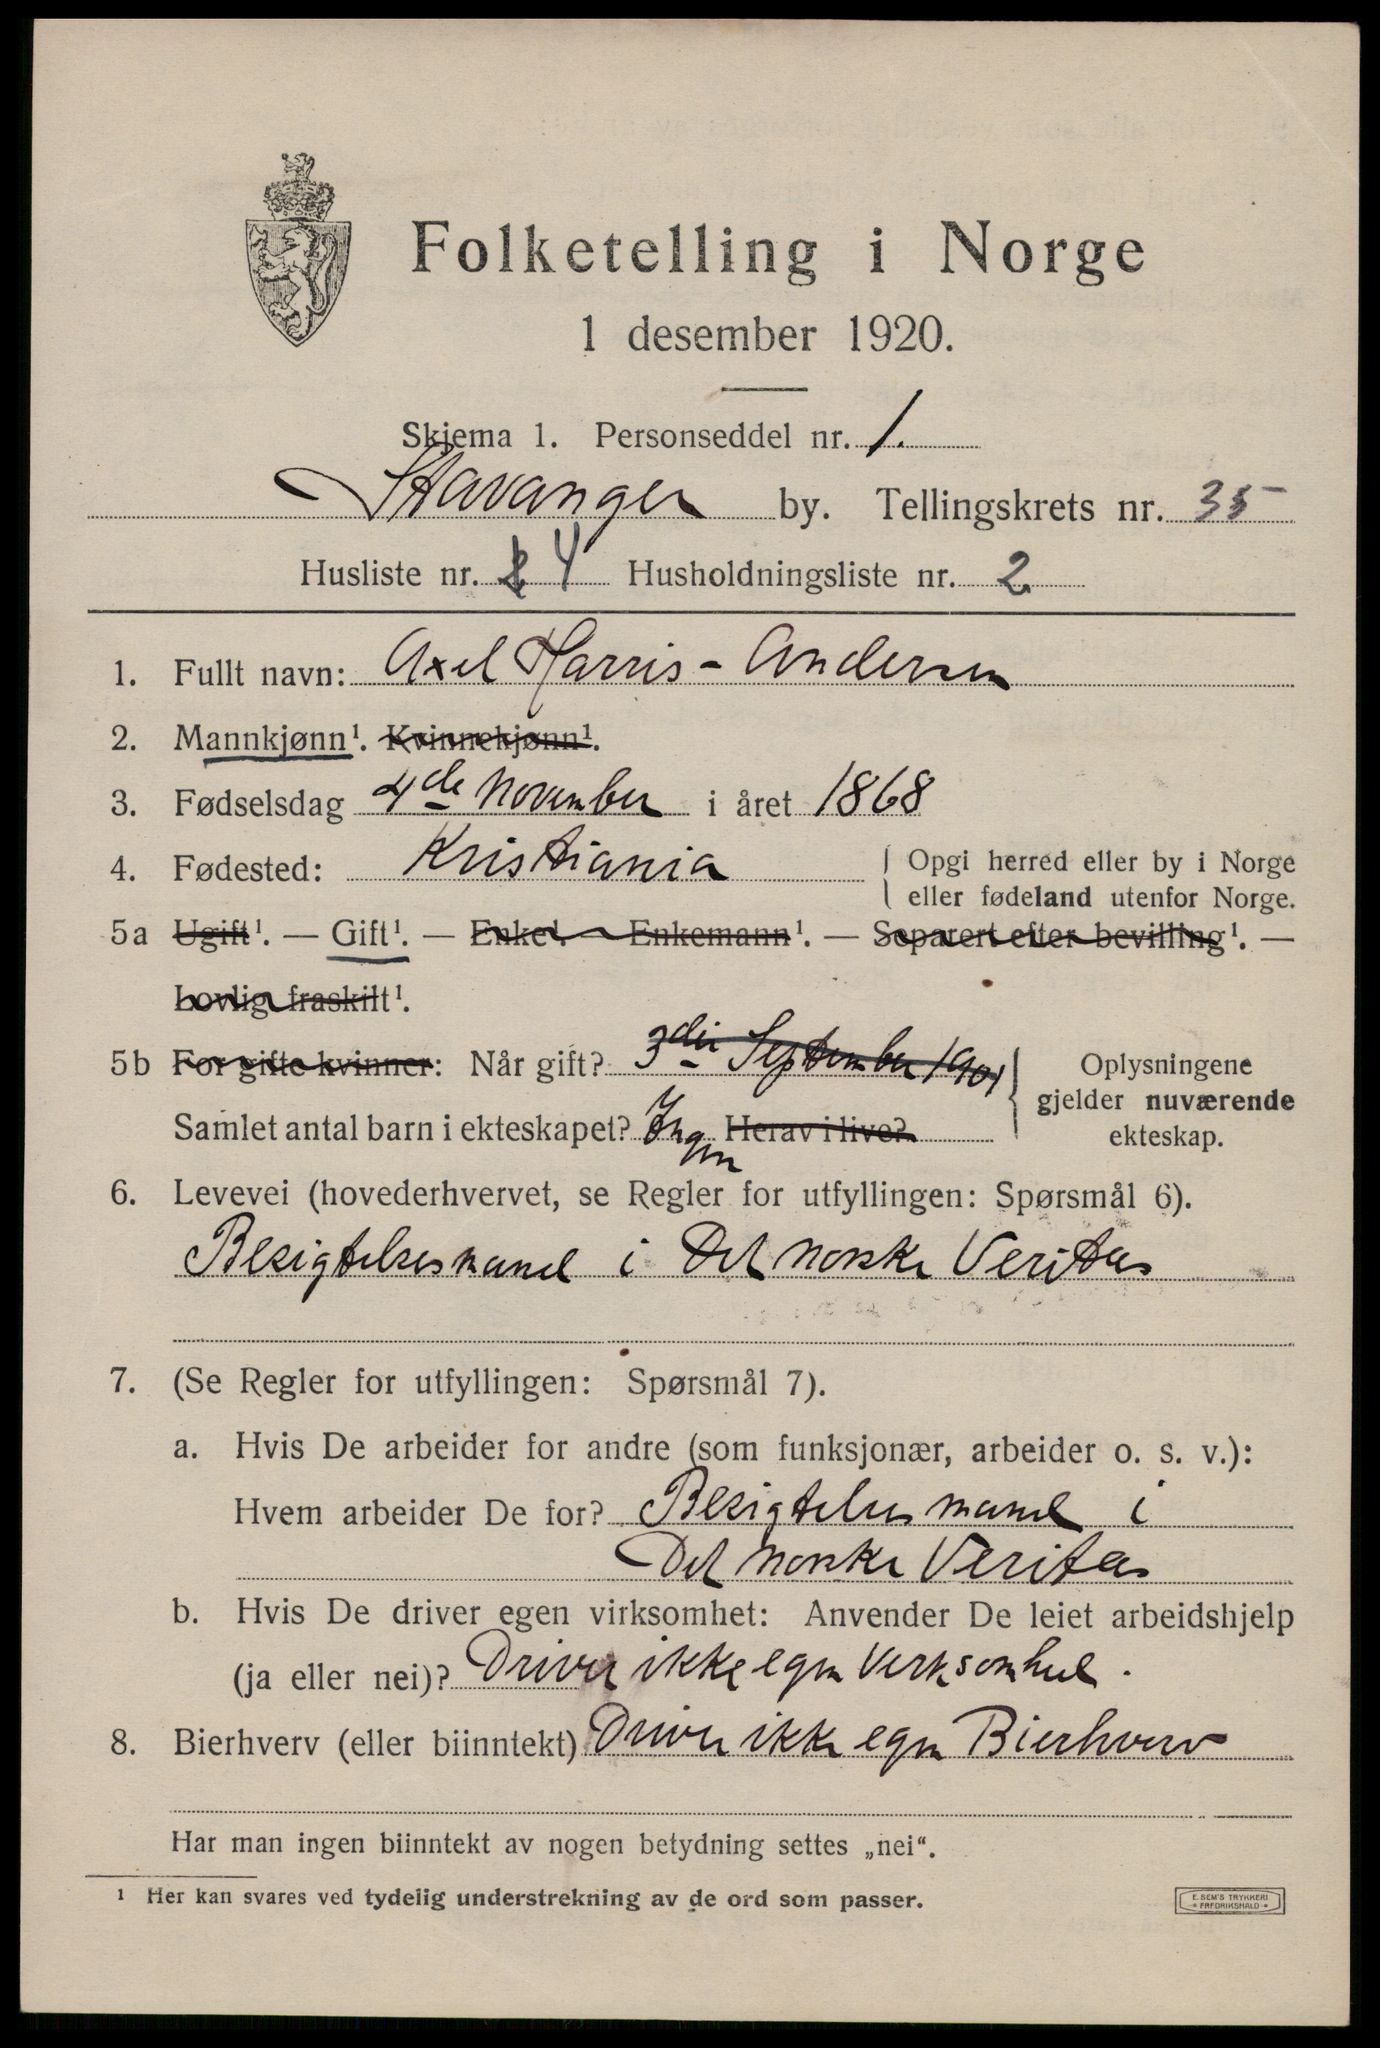 Folketelling i Norge
1 desember 1920.
Skjema 1. Personseddel nr. 1.
Stavanger by. Tellingskrets nr. 35
Husliste nr. 4 Husholdningsliste nr. 2
1. Fullt navn: Axel Harris-Andersen
2. Mannkjønn¹. Kvinnekjønn¹.
3. Fødselsdag 4de November i året 1868
4. Fødested: Kristiania
Opgi herred eller by i Norge
eller fødeland utenfor Norge.
5a Ugift¹. — Gift¹. — Enke¹. — Enkemann¹. — Separert efter bevilling¹. —
Lovlig fraskilt¹.
5b For gifte kvinner: Når gift? 3die September 1901
Samlet antal barn i ekteskapet? Ingen Herav i live?
Oplysningene
gjelder nuværende
ekteskap.
6. Levevei (hovederhvervet, se Regler for utfyllingen: Spørsmål 6).
Besigtelsesmand i Det norske Veritas
7. (Se Regler for utfyllingen: Spørsmål 7).
a. Hvis De arbeider for andre (som funksjonær, arbeider o. s. v.):
Hvem arbeider De for? Besigtelsesmand i
Det norske Veritas
b. Hvis De driver egen virksomhet: Anvender De leiet arbeidshjelp
(ja eller nei)? Driver ikke egen Verksomhed.
8. Bierhverv (eller biinntekt) Driver ikke egen Bierhverv
Har man ingen biinntekt av nogen betydning settes „nei“.
¹ Her kan svares ved tydelig understrekning av de ord som passer.
E. SEM'S TRYKKERI
FREDRIKSHALD